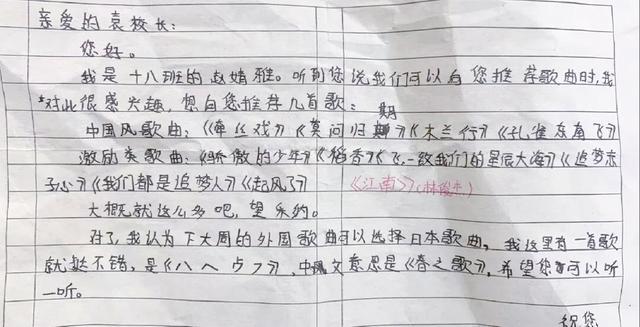 亲爱的袁校长：
您好。
我是十八班的赵婧雅。听到您说我们可以向您推荐歌曲时，我
对此很感兴趣，想向您推荐几首歌：
中国风歌曲：《牵丝戏》《莫问归期》《木兰行》《孔雀东南飞》
激励类歌曲：《骄傲的少年》《稻香》《飞，致我们的星辰大海》《追梦赤
子心》《我们都是追梦人》《起风了》 《江南》(林俊杰)
大概就这么多吧，望采纳。
对了，我认为下大周的外国歌曲可以选择日本歌曲，我这里有一首歌
就挺不错，是《ハヘウフ》，中文意思是《春之歌》，希望您可以听
一听。
祝您